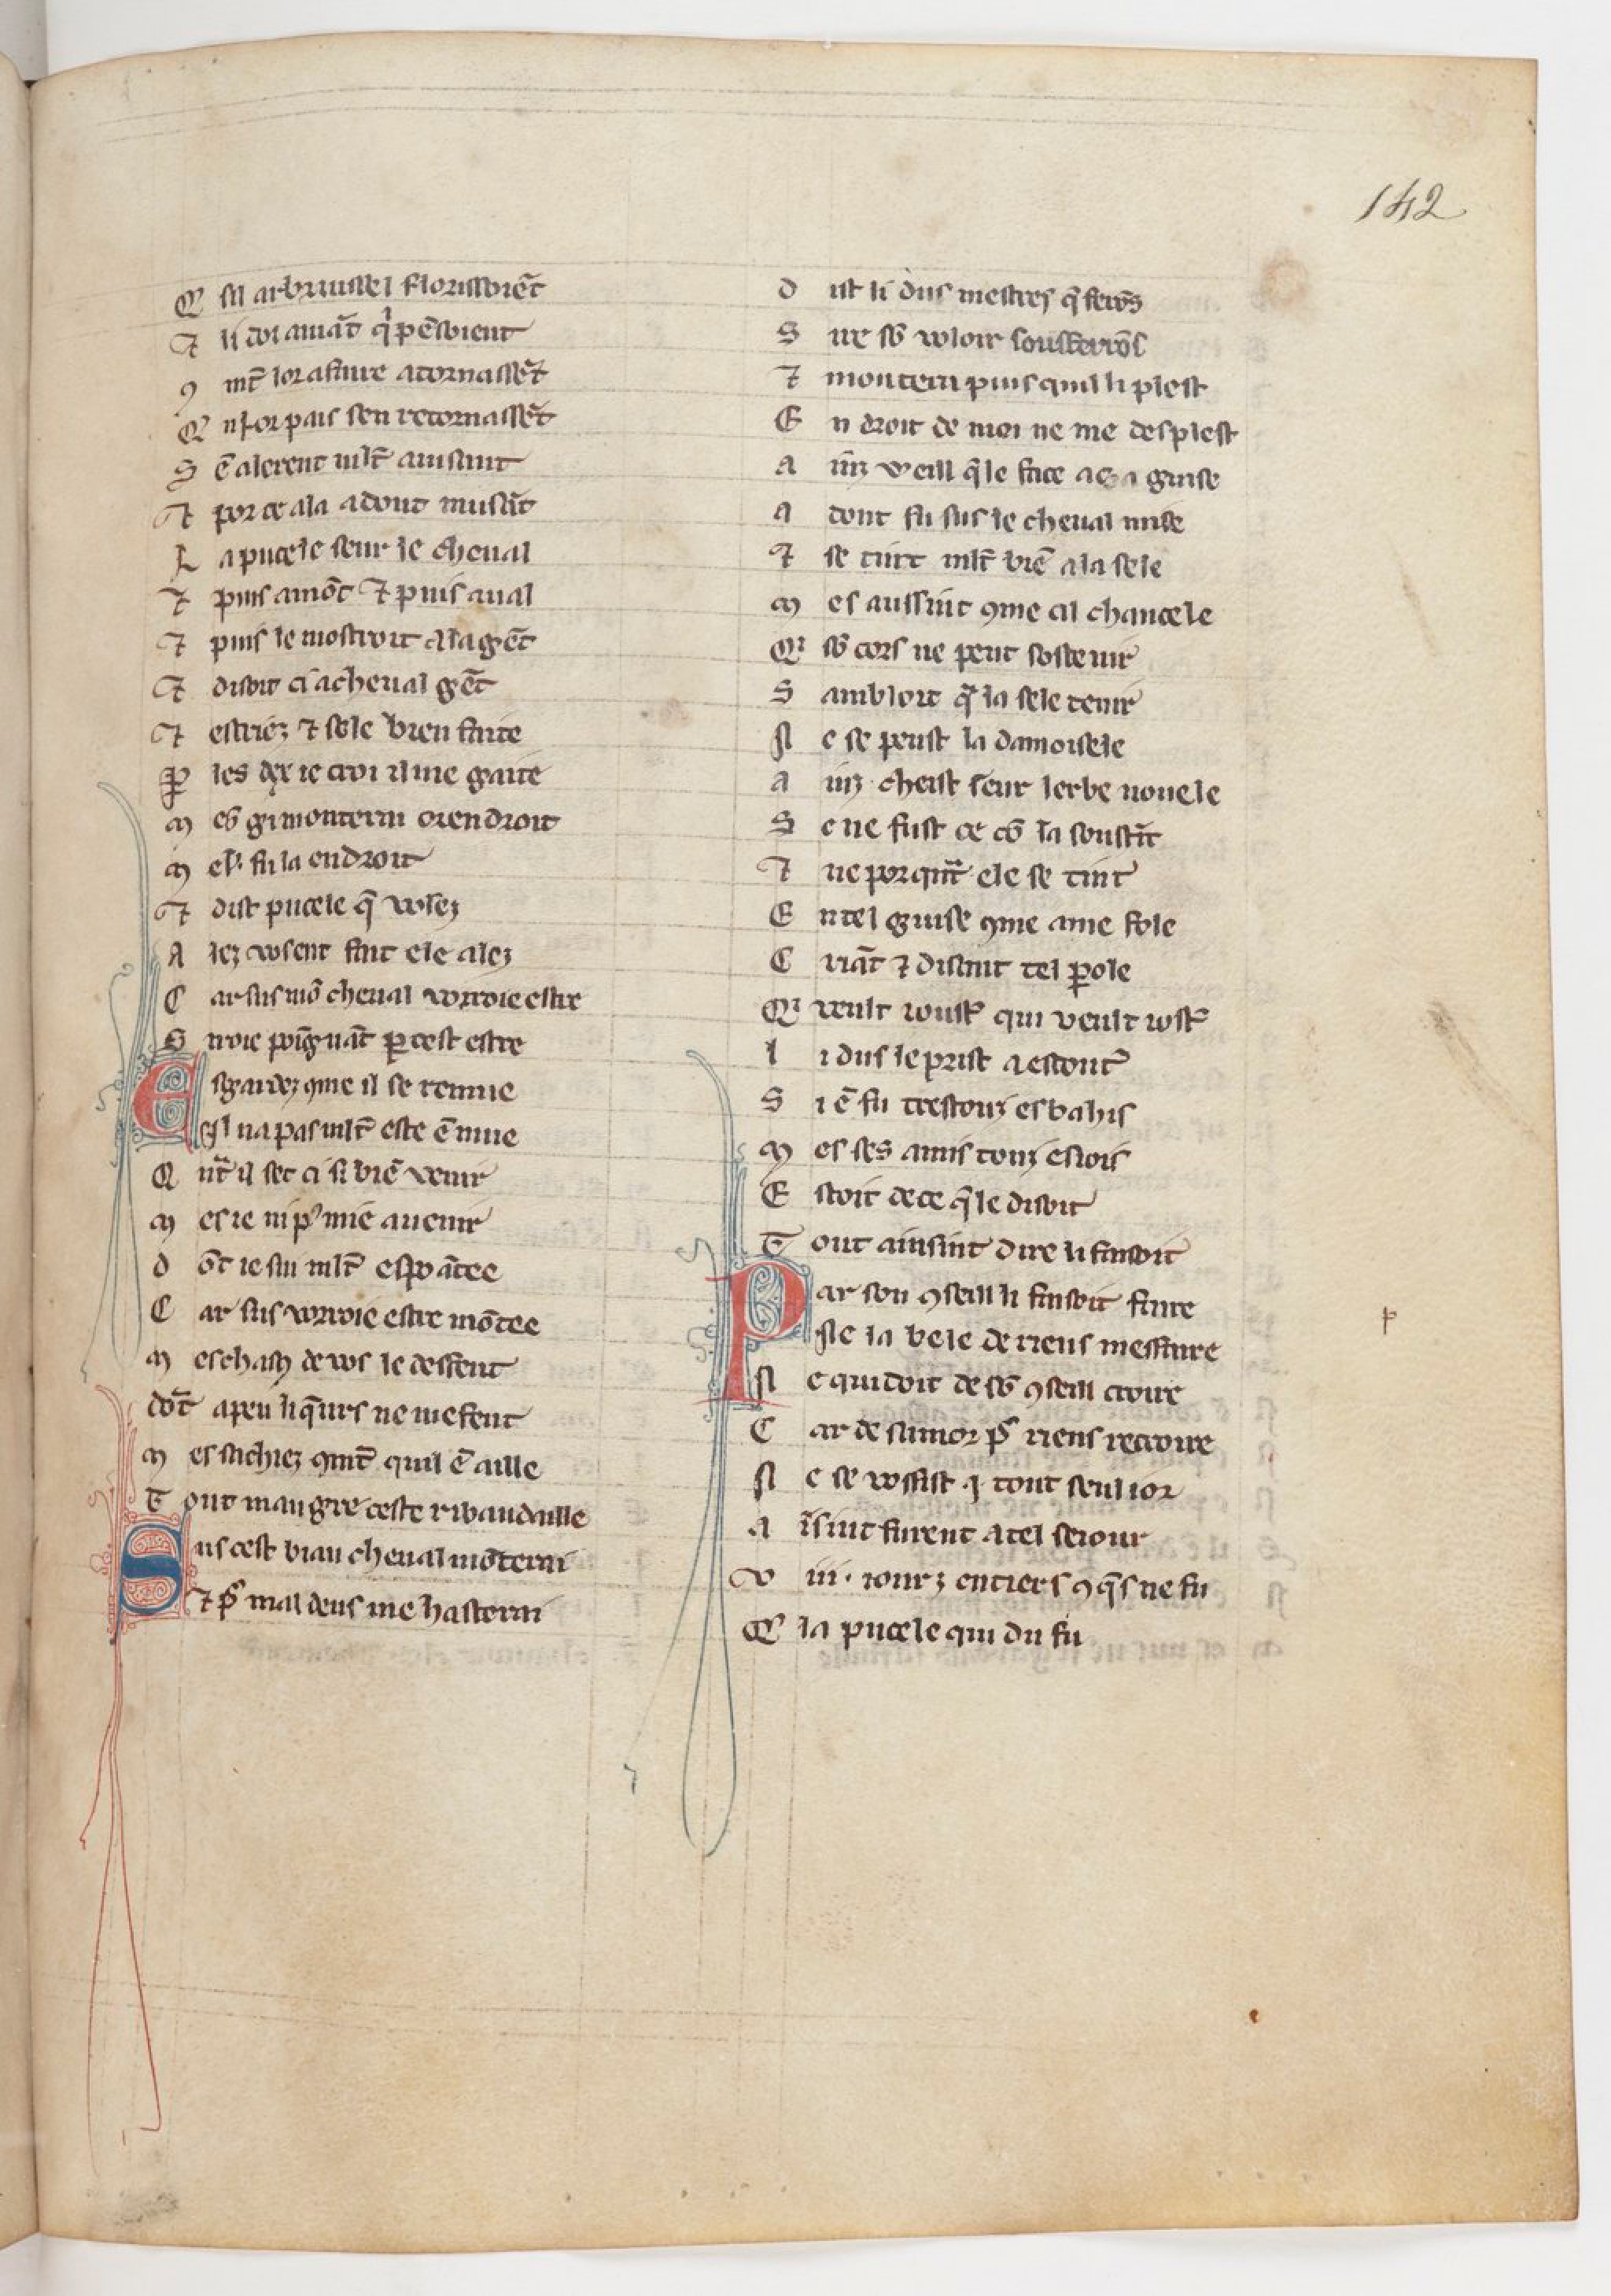 142
Q sil arbruissel florissoiēt
⁊ li doi amāt qͥ pēsoient
ꝯ mēt lor afaire atornassēt
Q nlor pais sen retornassēt
S ē alerent mlt̄ ausint
⁊ por ce ala adont musāt
L a pucele seur le cheual
⁊ puis amōt ⁊ puis aual
⁊ puis le mostroit a la gēt
⁊ disoit ci a cheual gēt
⁊ estriez ⁊ sele bien faite
ꝑ les dex ie croi il me gaite
M es gi monterai orendroit
M el᷑ fu la endroit
⁊ dist pucele q̄ volez
A lez vos ent fait ele alez
C ar sus mō cheual vorroie estre
S iroie poīgnāt ꝑ cest estre
E sgardez ꝯme il se remue
Il na pas mlt̄ este ē mue
Q nt̄ il set ci si biē venir
M es ie ni pͥ mie auenir
D ōt ie sui mlt̄ espoātee
C ar sus vorroie estre mōtee
M es chascū de vos le deffent
dōt a peu li q̄urs ne me fent
M es sachiez ꝯmt̄ quil ē aille
T out maugre ceste ribaudaille
S us cest biau cheual mōterai
⁊ pͬ mal deus me hasterai
D ist li dus mestres q̄ ferōs
S ire sō voloir soufferrōs
⁊ montera puis quil li plest
E n droit de moi ne me desplest
A inz veill q̄le face a sa guise
A dont fu sus le cheual mise
⁊ se tint mlt̄ biē a la sele
M es aussint ꝯme cil chancele
Qͥ sō cors ne peut sostenir
S ambloit q̄ a la sele tenir
N e se peust la damoisele
A inz cheist seur lerbe nouele
S e ne fust ce cō la soustīt
⁊ ne porquāt ele se tint
E ntel guise ꝯme ame fole
C riāt ⁊ disant tel ꝑole
Qͥ veult iousť qui veult iosť
L i dus le prist a escouť
S i ē fu trestouz esbahis
M es ses amis touz esiois
E stoit de ce q̄le disoit
T out ainsint dire li faisoit
P ar son ꝯseill li faisoit faire
Ne la bele de riens meffaire
N e quidoit de sō ꝯseill croire
C ar de samor pͬ riens recroire
N e se vosist .j. tout seul ior
A īsint furent a tel seiour
V iii. iourz entiers ꝯq̄s ne fu
Q la pucele qui du fu
p